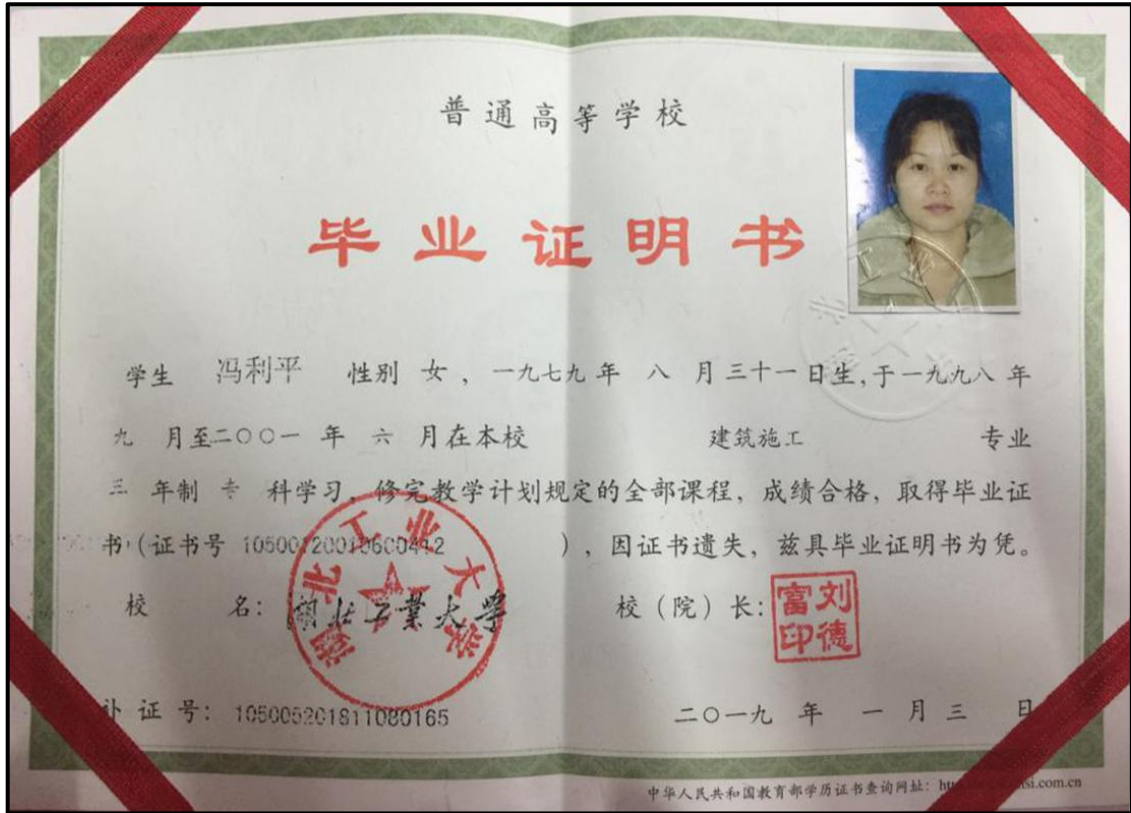 普通高等学校
毕业证明书
学生 冯利平 性别 女，一九七九年 八 月三十一日生，于一九九八年
九 月至二〇〇一 年 六 月在本校 建筑施工 专业
三 年制 专 科学习，修完教学计划规定的全部课程，成绩合格，取得毕业证
书（证书号 105001200106000412 ），因证书遗失，兹具毕业证明书为凭。
校 名：湖北工业大学 校（院）长：
湖北工业大学
刘德富印
补 证 号：105005201811080165 二〇一九 年 一 月 三 日
中华人民共和国教育部学历证书查询网址：